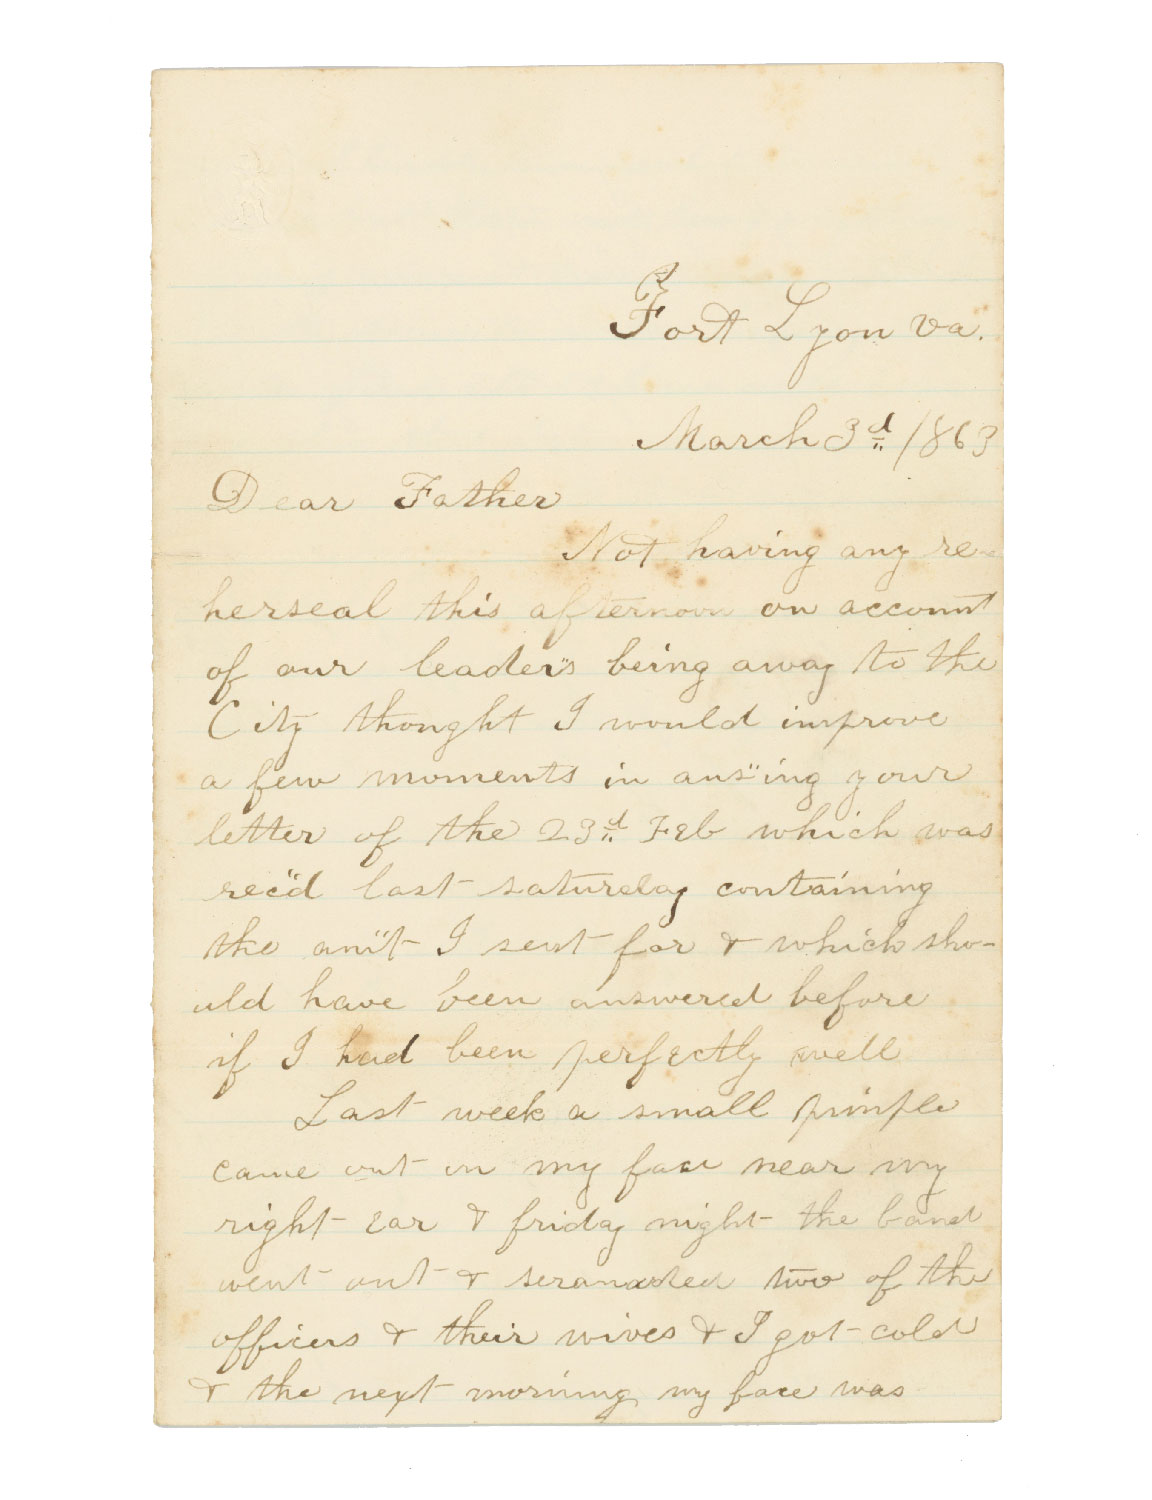 Fort Lyon Va.
March 3d /863
Dear Father
Not having any re-
herseal this afternoon on account
of our leaders being away to the
City thought I would improve
a few moments in ans"ing your
letter of the 23d Feb which was
rec"d last saturday containing
the am"t I sent for & which sho-
uld have been answered before
if I had been perfectly well
Last week a small pimple
came out on my face near my
right ear & friday night the band
went out & seranaded two of the
officers & their wives & I got cold
& the next morning my face was